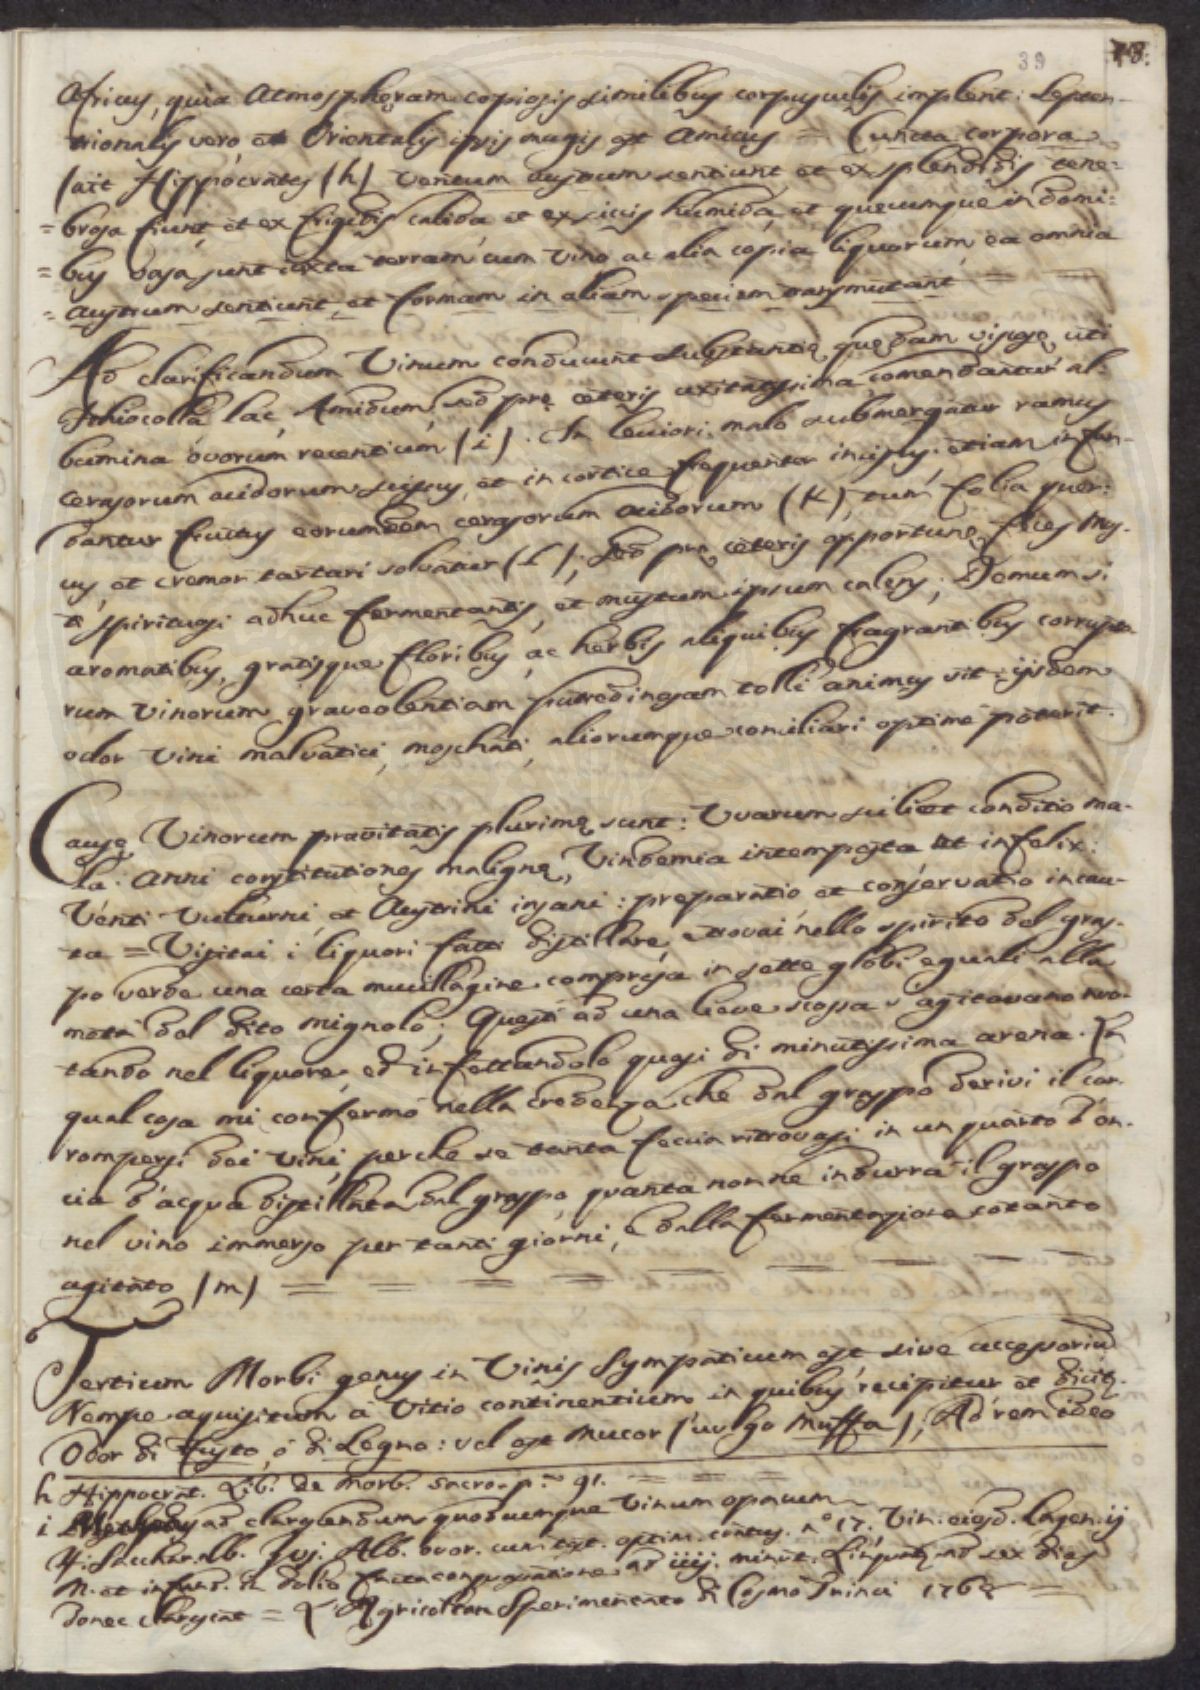 39 78.
Africus, quia Atmospheram copiosis similibus corpusculis implent: Septen-
trionalis vero et Orientalis ipsis magis est Amicus = Cuncta corpora
(ait Hippocrates (h) ventum austrum sentiunt et ex splendidis tene=
=brosa fiunt et ex frigidis calida et ex siccis humida, et quecumque in domi=
=bus vasa sunt iuxta terram cum vino ac alia copia liquorum, ea omnia
=austrum sentiunt, et formam in aliam speciem transmutant = =
Ad clarificandum Vinum conducunt substantię quędam viscosę, uti
Icthiocolla lac, Amidum, sed prę ceteris usitatissima comendantur al-
bumina ovorum recentium (i). In leviori malo submergatur ramus
cerasorum acidorum scissus, et in cortice frequenter incisus: etiam infun-
dantur fructus eorumdem cerasorum acidorum (K), tum folia quer:
us, et cremor tartari solvatur (l). Sed prę ceteris opportunę fęces Mus-
ti spirituosi adhuc fermentantis, et mustum ipsum calens; Demum si
aromatibus, gratisque floribus, ac herbis aliquibus fragrantibus corrupto-
rum Vinorum graveolentiam putredinosam tolli animus sit: ijsdem
odor Vini malvatici, moschati, aliorumque conciliari optime poterit.
Causę Vinorum pravitatis plurimę sunt: Uvarum scilicet conditio ma-
la: Anni constitutiones malignę, Vindemia intempesta et infelix:
Venti Vulturni, et Austrini insani: preparatio et conservatio incau-
ta = Visitai i liquori fatti distillare, e trovai nello spirito del gras-
po verde una certa mucillagine compresa in sette globi eguali alla
metà del dito mignolo; Questi ad una lieve scossa s'agitavano nuo-
tando nel liquore, ed infettandolo quasi di minutissima arena. In
qual cosa mi confermò nella credenza che dal graspo derivi il cor-
rompersi dei vini, perche se tanta feccia ritrovasi in un quarto d'on-
cia d'acqua distillata dal graspo, quanta non ne indurrà il graspo
nel vino immerso per tanti giorni, e dalla fermentazione cotanto
agitato (m) = = = = = = = =
Tertium Morbi genus in Vinis Sympaticum est sive accessorium
Nempe aquisitum à Vitio continentium in quibus recipitur et dicitur
Odor di Fusto, ò di Legno: vel est Mucor (vulgo Muffa); Ad rem ideo
h Hippocrat. Lib. de Morb. Sacro. p. 91. = = =
i Methodus ad clarificandum quodcumque Vinum opacum
℞. Sacchar. alb. Ʒvj. Alb. ovor. cum test. optim. contus. n.° 17. Vin. eiusd. Lagen. ij
M. et infund. in dolio facta conquassatione ad iiij. minut. Linquatur ad sex dies
donec clarescat = L'Agricoltor Sperimentato di Cosmo Trinci 176 =